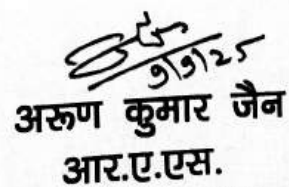 9/9/25
अरूण कुमार जैन
आर.ए.एस.